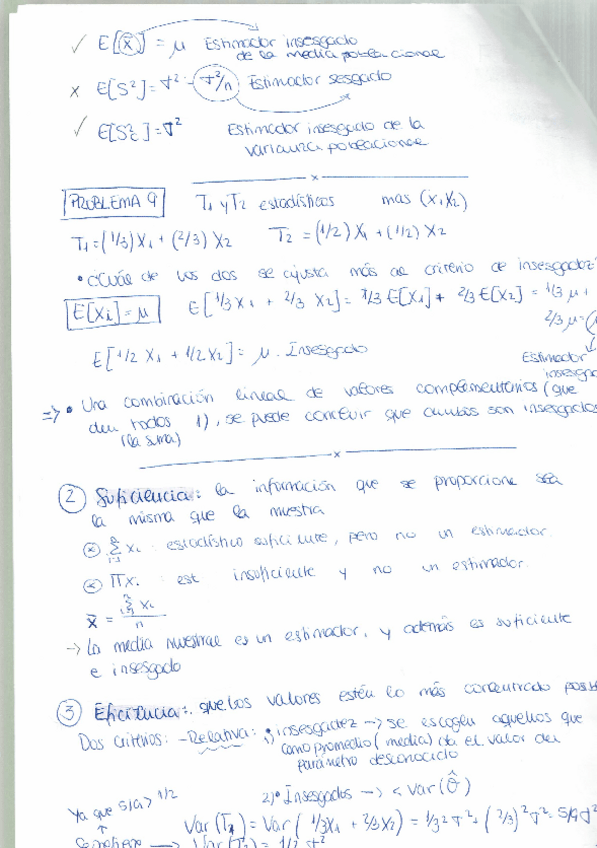 ✓ E[x̄] = μ Estimador insesgado
de la media poblacional
x E[S²] = σ² - σ²/n Estimador sesgado
✓ E[Sc²] = σ² Estimador insesgado de la
varianza poblacional
PROBLEMA 9 T1 y T2 estadísticos mas (X1X2)
T1 = (1/3) X1 + (2/3) X2 T2 = (1/2) X1 + (1/2) X2
• ¿Cuál de los dos se ajusta más al criterio de insesgadez?
E[Xi] = μ E[1/3 X1 + 2/3 X2] = 1/3 E[X1] + 2/3 E[X2] = 1/3 μ +
2/3 μ =
E[1/2 X1 + 1/2 X2] = μ. Insesgado
Estimador
insesga
=> • Una combinación lineal de valores complementarios (que
den todos 1), se puede concluir que ambos son insesgados
(la suma)
② Suficiencia: la información que se proporcione sea
la misma que la muestra
Σ xi : estadístico suficiente, pero no un estimador.
Πx. : est insuficiente y no un estimador.
x̄ = Σ xi / n
-> La media muestral es un estimador, y además es suficiente
e insesgado
③ Eficiencia: que los valores estén lo más concentrado posib
Dos criterios: - Relativa: insesgadez -> se escogen aquellos que
como promedio (media) da el valor del
parámetro desconocido
Ya que 5/9 > 1/2 2) Insesgados -> < Var(θ̂)
Var(T1) = Var(1/3 X1 + 2/3 X2) = 1/3² σ² + (2/3)² σ² = 5/9 σ²
Var(T2) = 1/2 σ²